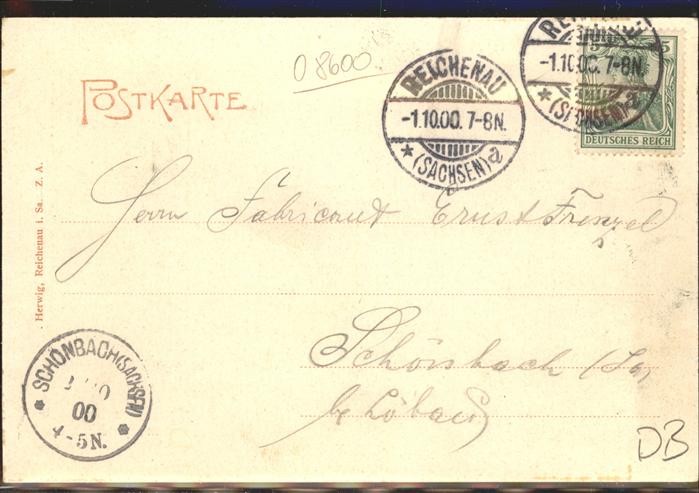 O 8600
POSTKARTE
REICHENAU
-1.10.00.7-8N.
(SACHSEN) a
-1.10.00.7-8N.
(SACHSEN) a
5
DEUTSCHES REICH
Herrn Fabricant Ernst Frenzel
Schönbach (Sa)
b/ Löbau
Herwig, Reichenau i. Sa. Z. A.
SCHÖNBACH (SACHSEN)
00
4-5N.
DB